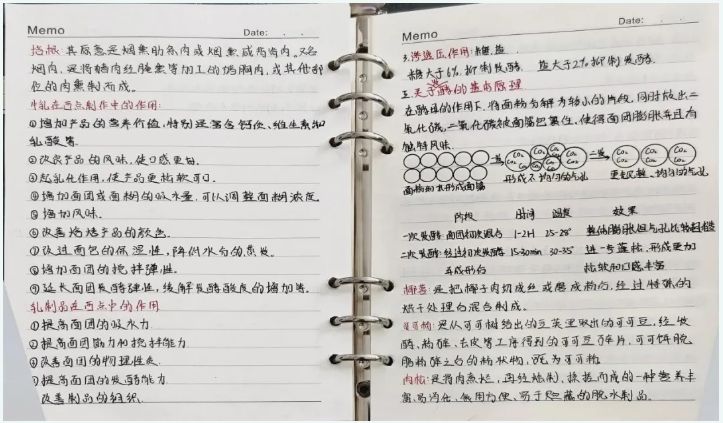 Memo
Date:
培根:其原意是烟熏肋条肉或烟熏咸背脊肉。又名
烟肉,是将猪肉经腌熏等加工的猪胸肉,或其他部
位的肉熏制而成。
牛乳在西点制作中的作用:
①增加产品的营养价值,特别是富含钙质、维生素和
乳酸等.
②改良产品的风味,使口感更
③起乳化作用,使产品更松软可口.
④增加面团或面糊的吸水量,可以调整面糊浓度
⑤增加风味.
⑥改善烘焙产品的颜色.
⑦改进面包的保湿性,降低水分的蒸发。
⑧增加面团的搅拌弹性。
⑨延长面团发酵弹性,缓解发酵酸度的增加等.
乳制品在西点中的作用
①提高面团的吸水力
②提高面团筋力和搅拌能力
③改善面团的物理性质
④提高面团的发酵能力
改善制品的组织.
Memo
Date:
3.渗透压作用:糖.盐.
糖大于6%.抑制发酵. 盐大于2%抑制发酵.
五.关于酵的基本原理
在酵母的作用下,将面粉分解为较小的片段,同时放出二
氧化碳,二氧化碳被面筋包裹住,使得面团膨胀并且有
独特风味.
CO₂ CO₂ CO₂ CO₂ CO₂ CO₂
面粉和水形成面筋 形成不均匀的气孔 更均匀的气孔
阶段 时间 温度 效果
一次发酵:面团初次混合 1-2H 25-28° 整体膨胀但气孔比较粗糙
二次发酵:经过初次发酵 15-30min 30-35° 进一步蓬松.形成更加
并成形的 松软和口感丰富
椰蓉:是把椰子肉切成丝或磨成粉后,经过特殊的
烘干处理后混合制成。
可可粉:是从可可树结出的豆荚里取出的可可豆,经发
酵、粉碎、去皮等工序得到的可可豆碎片,可可饼脱
脂粉碎之后的粉状物,既为可可粉
肉松:是将肉煮烂,再经炒制,揉搓而成的一种营养丰
富.易消化.食用方便.易于贮藏的脱水制品.